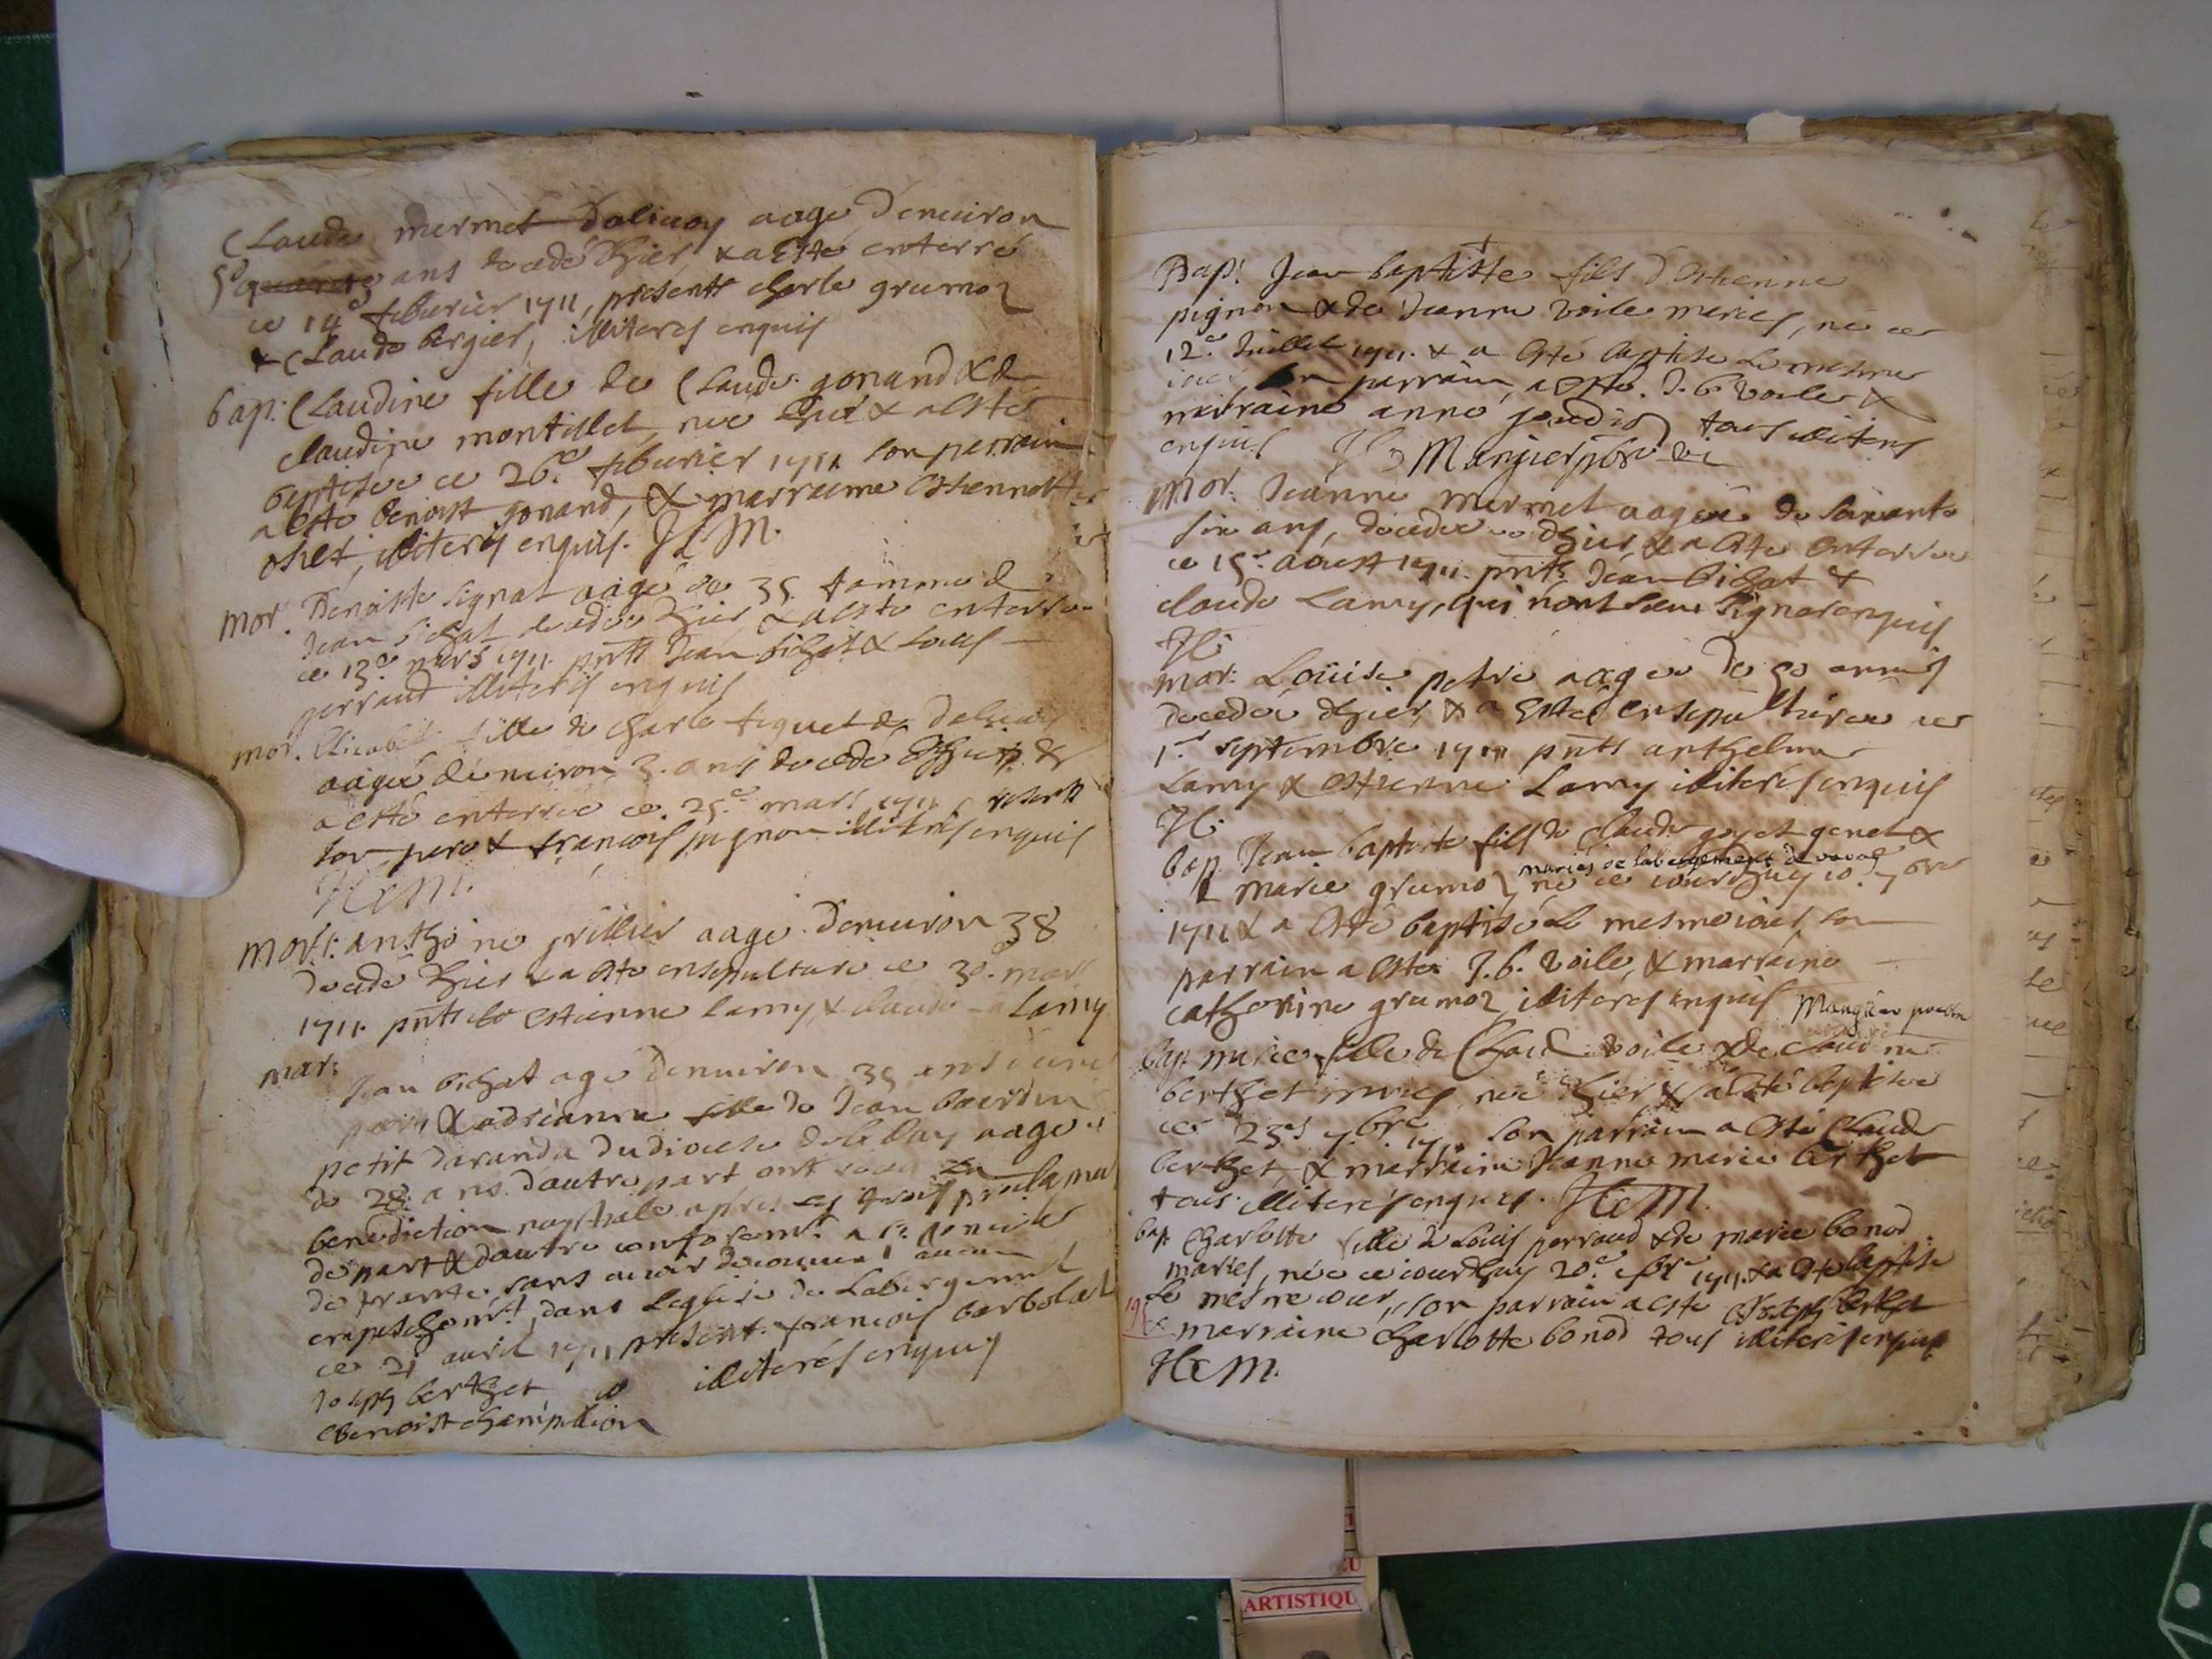 Claude mermet aagé d'enuiron
50 ans decedé hier & a esté enterré
ce 14e feburier 1711, presents charle grumoz
& Claude bergier, illiteres enquis
bap: Claudine fille de Claude gonand & de
claudine montillet, née hier & a esté
baptisée ce 26e feburier 1711 son parrain
a esté benoist gonand, & marraine estiennette
illiteres enquis. H C M.
mor. Benoiste signat aagé de 35. femme de
Jean bichat decedée hier & a esté enterrée
ce 13e mars 1711 pnts Jean bichat & louis
perraud illiterés enquis
mor. fille de charle fiquet de
aagée d'enuiron 3. ans decedé hier &
a esté enterrée ce 25e mars 1711 presents
son pere & françois pignon illiterés enquis
H C M.
mort: anthoine grillier aagé d'enuiron 38
decedé hier & a esté ensepulturé ce 30. mars
1711. pnts estienne lamy, & claude lamy
mar:
Jean bichat agé denuiron 35 ans d'une
part & adrianne fille de Jean
petit daranda du diocese de bellay aagée
de 28. ans. dautre part ont receu la
benediction nuptiale apres les trois proclama
de part & dautre conformt. au c. concile
de trente, sans auoir decouuert aucun
empeschemt, dans leglise de Labergement
ce 21 auril 1711 present françois barbolat
Joseph berthet illiterés enquis
& benoist champillion
Bap! Jean baptiste fils d'Estienne
pignon & de Jeanne voile mariés, né ce
12e. Juillet 1711. & a esté baptisé le mesme
iour, son parrain, a esté. J. b voile &
marraine anne tous illiteres
enquis Mangier
mor: Jeanne mermet aagée de soixante
six ans, decedée hier, & a esté enterrée
ce 15e. aoust 1711. pnts Jean bichat &
claude Lamy, qui n'ont sceu signer enquis
H C
mor: Louise petre aagée de 50 années
decedée hier, & a esté ensepulturée ce
1er septembre 1711 pnts anthelme
Lamy & estienne Lamy illiterés enquis
H C
bap. Jean baptiste fils de Claude goyet genet &
mariés de labergement de
& marie grumoz né ce iourdhuy 10. 7bre
1711 & a esté baptisé le mesme iour, son
parrain a esté J. b. voile, & marraine
catherine grumoz illiterés enquis Mangier
bap. marie fille de Claude voile & de claudine
berthet mariés, née hier & a esté baptisée
ce 23e 7bre. 1711 son parrain a esté Claude
berthet, & marraine Jeanne marie berthet
tous illiterés enquis. H C M.
bap. Charlotte fille de Louis perraud & de marie bonod
mariés, née ce iourdhuy 20e 1711 & a esté baptisé
le mesme iour, son parrain a esté Joseph berthet
& marraine Charlotte bonod tous illiterés enquis
H C M.
ARTISTIQU